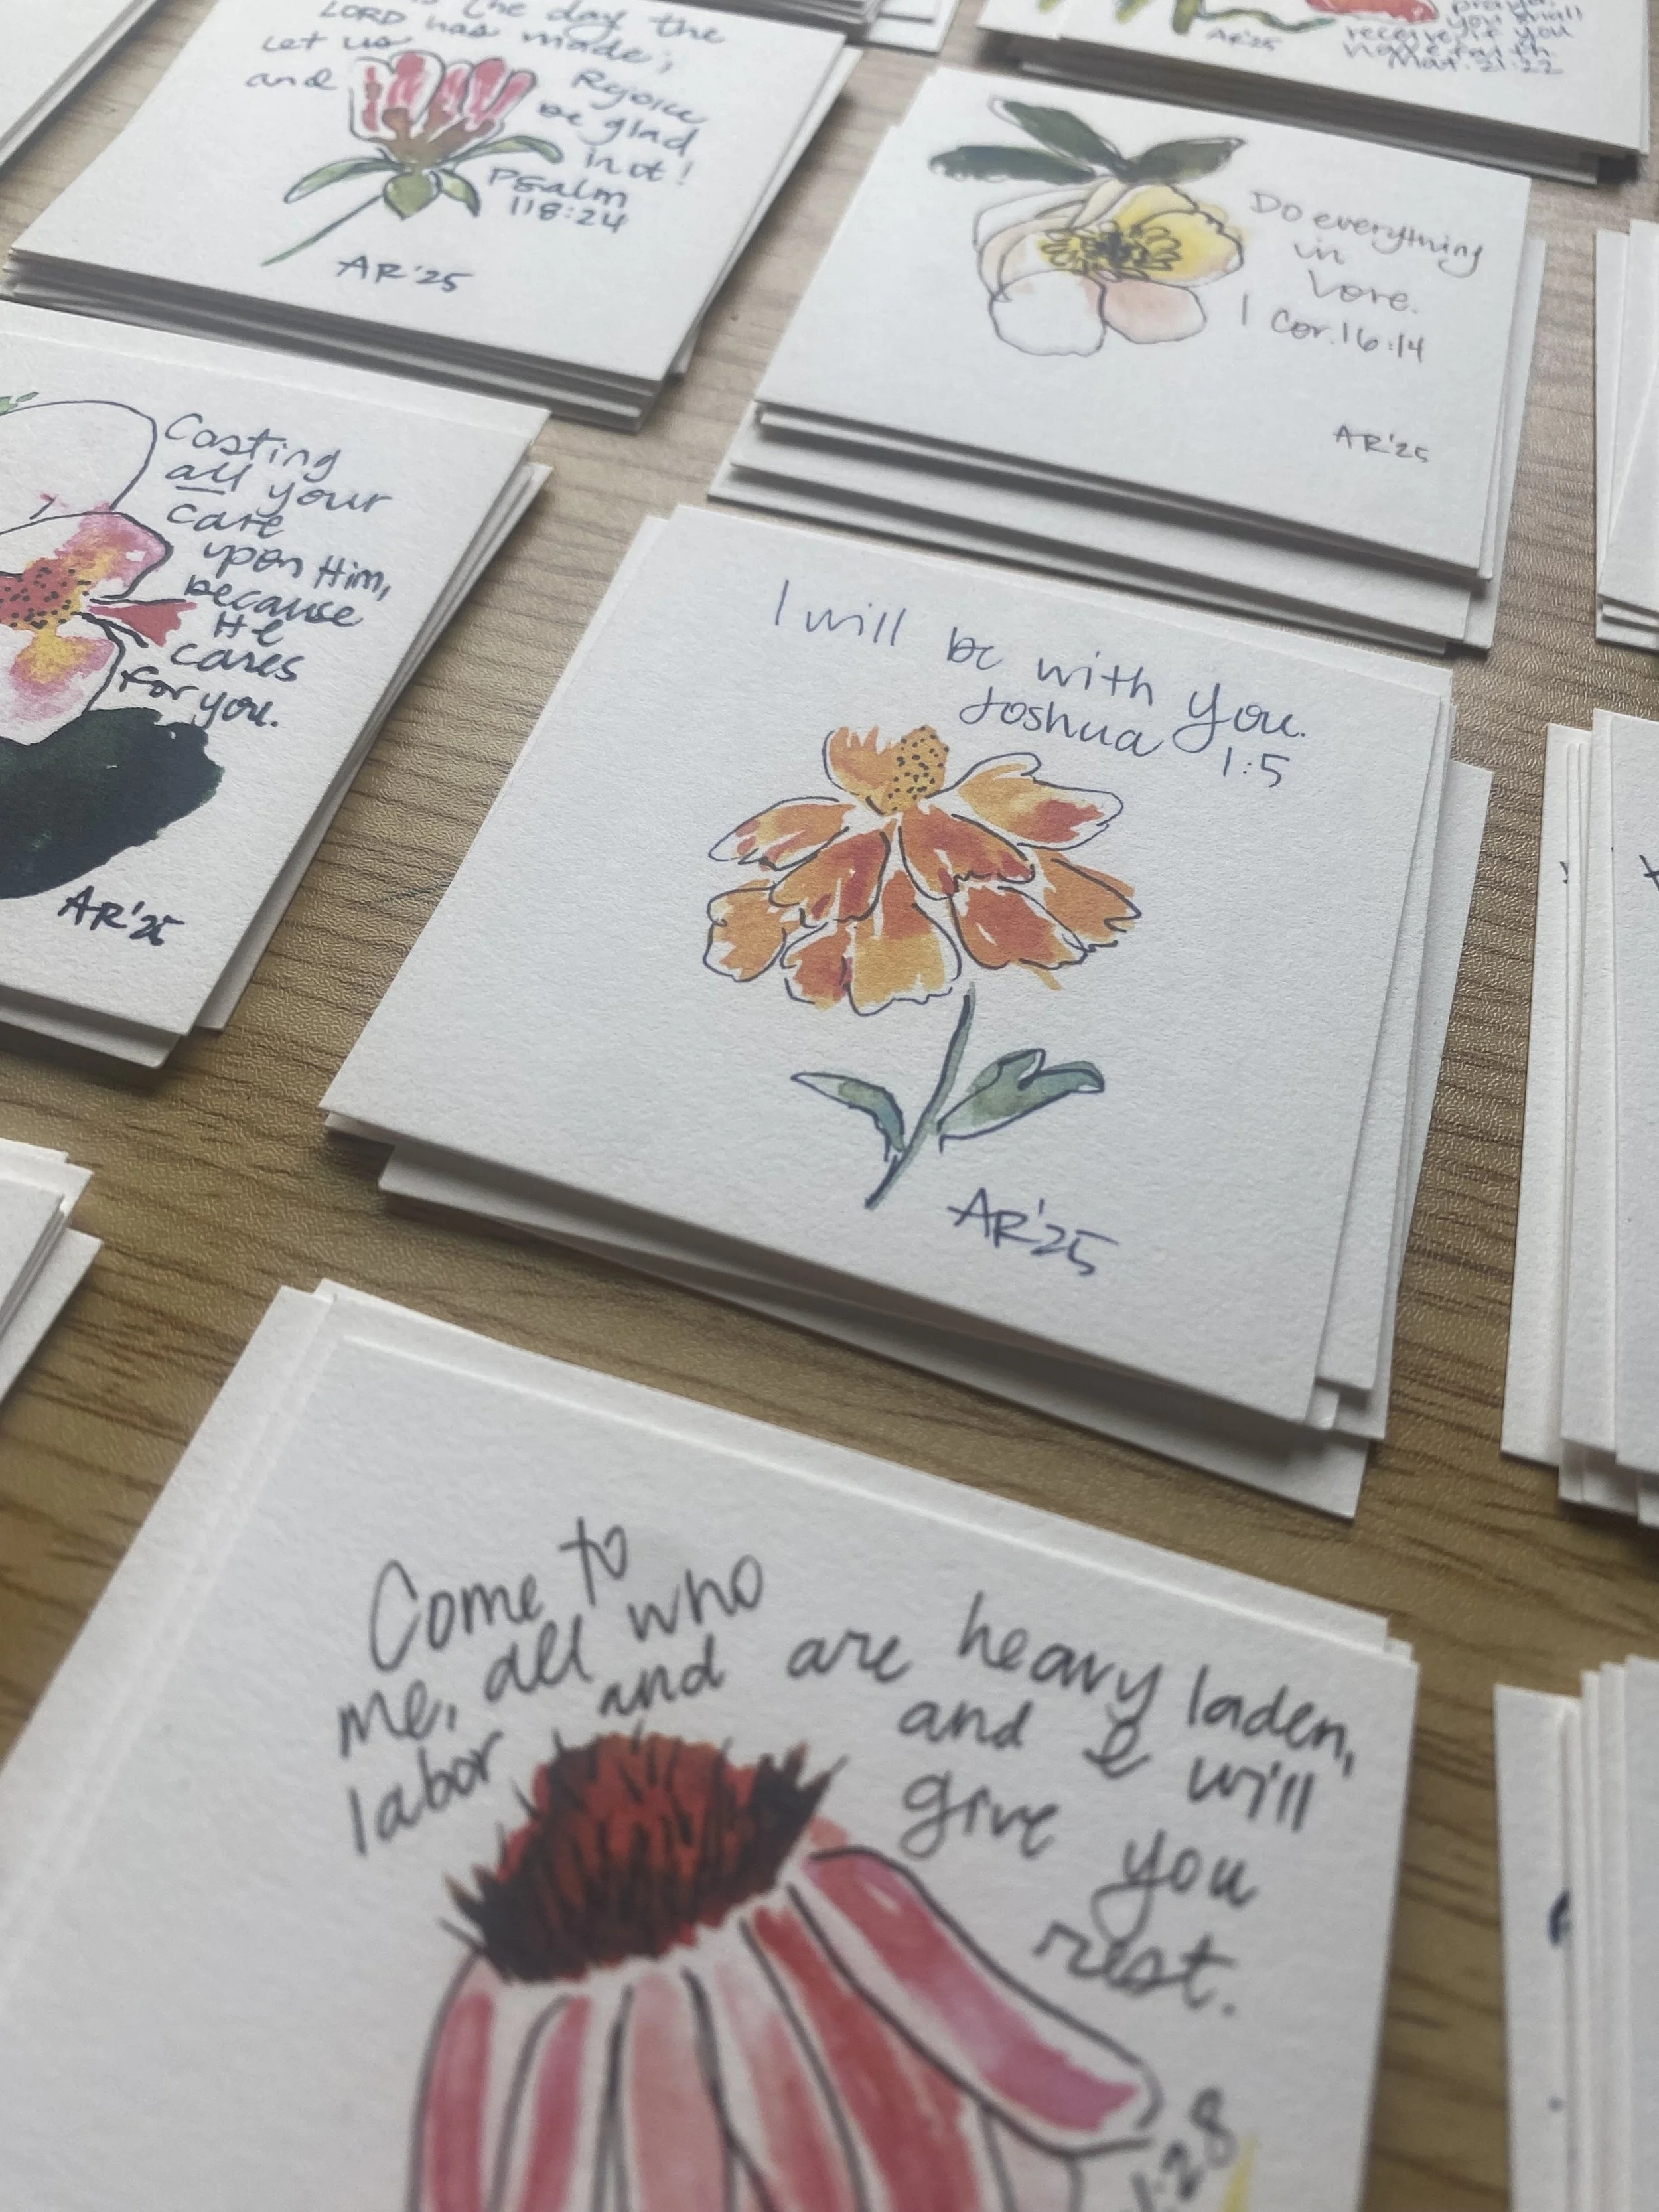 the day the
LORD has made;
Let us
and Rejoice
be glad
in it!
Psalm
118:24
AR'25
AR'25
you shall
receive, if you
have faith.
Mat. 21:22
Do everything
in
Love.
1 Cor. 16:14
AR'25
Casting
all your
care
upon Him,
because
He
cares
for you.
AR'25
I will be with you.
Joshua
1:5
AR'25
Come to
me, all who
labor and are heavy laden,
and I will
give you
rest.
:28